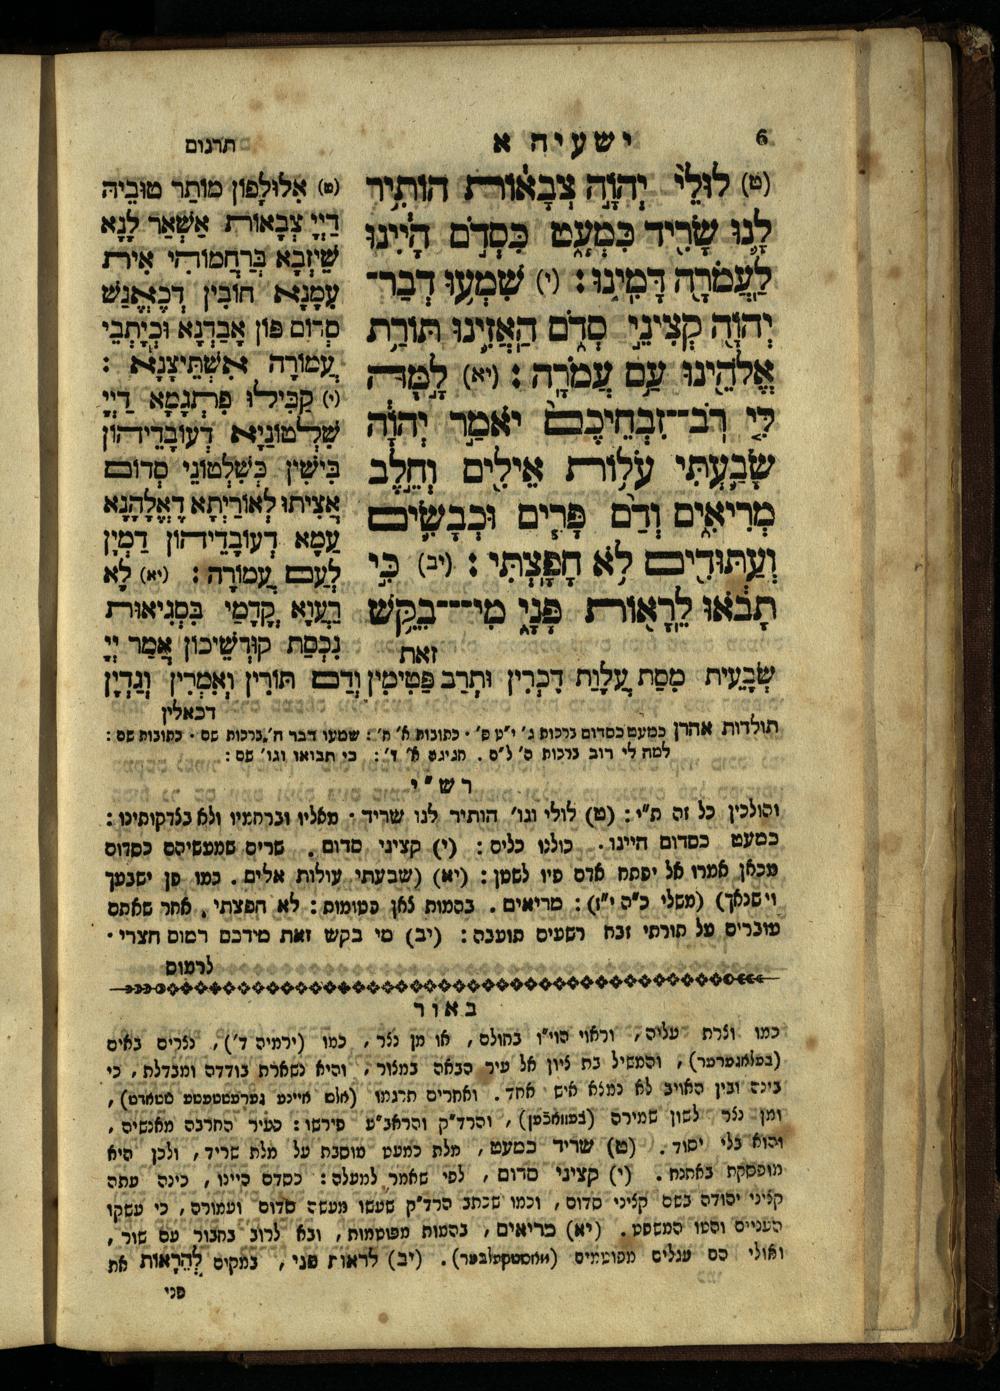 6
ישעיה א
תרגום
(ט) לוּלֵי יְהוָה צְבָאוֹת הוֹתִיר
לָנוּ שָׂרִיד כִּמְעָט כִּסְדֹם הָיִינוּ
לַעֲמֹרָה דָּמִינוּ: (י) שִׁמְעוּ דְבַר־
יְהוָה קְצִינֵי סְדֹם הַאֲזִינוּ תּוֹרַת
אֱלֹהֵינוּ עַם עֲמֹרָה: (יא) לָמָּה
לִּי רֹב־זִבְחֵיכֶם יֹאמַר יְהוָה
שָׂבַעְתִּי עֹלוֹת אֵילִים וְחֵלֶב
מְרִיאִים וְדַם פָּרִים וּכְבָשִׂים
וְעַתּוּדִים לֹא חָפָצְתִּי: (יב) כִּי
תָבֹאוּ לֵרָאוֹת פָּנָי מִי־בִקֵּשׁ
זאת
(ט) אִלוּלָפוֹן מוֹתַר טוּבֵיהּ
דַיְיָ צְבָאוֹת אַשְׁאַר לָנָא
שֵׁיזְבָא בְּרַחֲמוֹהִי אִית
עִמָנָא חוֹבִין דְכֶאֱנַשׁ
סְדוֹם פּוֹן אֲבַדְנָא וּכְיָתְבֵי
עֲמוֹרָה אִשְׁתֵּיצָנָא:
(י) קַבִּילוּ פִּתְגָמָא דַיְיָ
שִׁלְטוֹנַיָא דְעוֹבָדֵיהוֹן
בִּישִׁין כְּשִׁלְטוֹנֵי סְדוֹם
אֲצִיתוּ לְאוֹרַיְתָא דֶאֱלָהָנָא
עַמָא דְעוֹבָדֵיהוֹן דַמְיָן
לְעַם עֲמוֹרָה: (יא) לָא
רַעֲוָא קֳדָמַי בִּסְגִיאוּת
נִכְסַת קוּדְשֵׁיכוֹן אֲמַר יְיָ
שְׂבָעִית מִסַת עֲלָוַת דִכְרִין וּתְרַב פַּטִימִין וְדַם תּוֹרִין וְאִמְרִין וְגַדְיָן
דכאלין
תולדות אהרן כמעט כסדום ברכות ג' י"ט ס' · כתובות א' ח': שמעו דבר ה', ברכות שם · כתובות שם:
למה לי רוב ברכות ס' ל"ס. חגיגה א' ד': כי תבואו וגו' שם:
רש"י
והולכין כל זה ת"י: (ט) לולי וגו' הותיר לנו שריד · מאליו וברחמיו ולא בצדקותינו:
כמעט כסדום היינו. כולנו כלים: (י) קציני סדום. שרים שמעשיהם כסדום
מכאן אמרו אל יפתח אדם פיו לשטן: (יא) (שבעתי עולות אלים. כמו פן ישבעך
וישנאך) (משלי כ"ה י"ז): מריאים. בהמות צאן פטומות: לא חפצתי. אחר שאתם
עוברים על תורתי זבח רשעים תועבה: (יב) מי בקש זאת מידכם רמוס חצרי ·
לרמוס
באור
כמו ונצרת עליה, וראוי הוי"ו בחולם, או מן נצר, כמו (ירמיה ד'), נצרים באים
(בעלאגערער), והמשיל בת ציון אל עיר הבאה במצור, והיא נשארת בודדה ומבדלת, כי
בינה ובין האויב לא נמצא איש אחד. ואחרים תרגמו (אלס איינע גערעטטעטע שטאדט),
ומן נצר לשון שמירה (בעוואכען), והרד"ק והראב"ע פירשו: כעיר החרבה מאנשיה,
והוא בלי יסוד. (ט) שריד כמעט, מלת כמעט מוסבת על מלת שריד, ולכן היא
מופסקת באתנח. (י) קציני סדום, לפי שאמר למעלה: כסדם היינו, כינה עתה
קציני יהודה בשם קציני סדום, וכמו שכתב הרד"ק שעשו מעשה סדום ועמורה, כי עשקו
העניים והטו המשפט. (יא) מריאים, בהמות מפוטמות, ובא לרוב בחבור עם שור,
ואולי הם עגלים מפוטמים (מאסטקעלבער). (יב) לראות פני, במקום לְהֵרָאוֹת את
פני